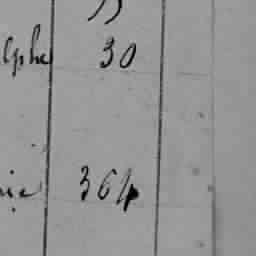 lphe 30
nie 364